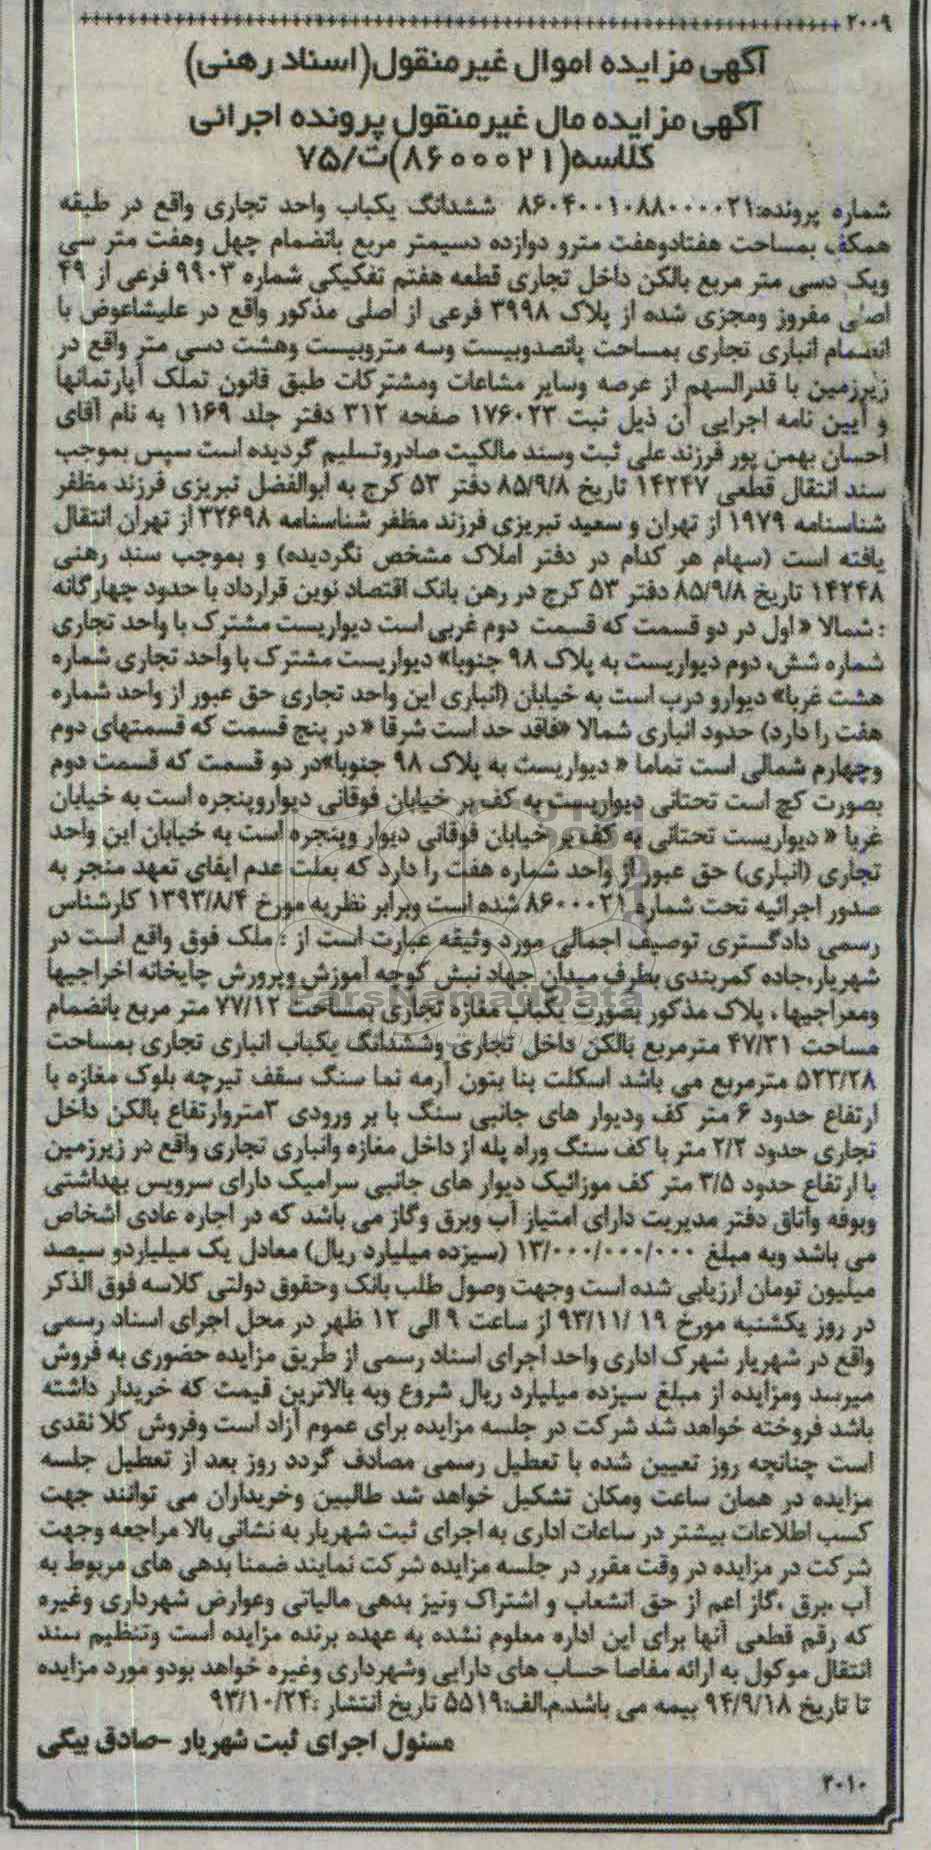 ۲۰۰۹
آگهی مزایده اموال غیرمنقول(اسناد رهنی)
آگهی مزایده مال غیرمنقول پرونده اجرائی
کلاسه(۸۶۰۰۰۲۱)ث/۷۵
شماره پرونده:۸۶۰۴۰۰۱۰۸۸۰۰۰۰۲۱ ششدانگ یکباب واحد تجاری واقع در طبقه
همکف بمساحت هفتادوهفت مترو دوازده دسیمتر مربع بانضمام چهل وهفت متر سی
ویک دسی متر مربع بالکن داخل تجاری قطعه هفتم تفکیکی شماره ۹۹۰۳ فرعی از ۴۹
اصلی مفروز ومجزی شده از پلاک ۳۹۹۸ فرعی از اصلی مذکور واقع در علیشاعوض با
انضمام انباری تجاری بمساحت پانصدوبیست وسه متروبیست وهشت دسی متر واقع در
زیرزمین با قدرالسهم از عرصه وسایر مشاعات ومشترکات طبق قانون تملک آپارتمانها
و آیین نامه اجرایی آن ذیل ثبت ۱۷۶۰۲۳ صفحه ۳۱۲ دفتر جلد ۱۱۶۹ به نام آقای
احسان بهمن پور فرزند علی ثبت وسند مالکیت صادروتسلیم گردیده است سپس بموجب
سند انتقال قطعی ۱۴۲۴۷ تاریخ ۸۵/۹/۸ دفتر ۵۳ کرج به ابوالفضل تبریزی فرزند مظفر
شناسنامه ۱۹۷۹ از تهران و سعید تبریزی فرزند مظفر شناسنامه ۳۲۶۹۸ از تهران انتقال
یافته است (سهام هر کدام در دفتر املاک مشخص نگردیده) و بموجب سند رهنی
۱۴۲۴۸ تاریخ ۸۵/۹/۸ دفتر ۵۳ کرج در رهن بانک اقتصاد نوین قرارداد با حدود چهارگانه
: شمالا « اول در دو قسمت که قسمت دوم غربی است دیواریست مشترک با واحد تجاری
شماره شش، دوم دیواریست به پلاک ۹۸ جنوبا» دیواریست مشترک با واحد تجاری شماره
هشت غربا» دیوارو درب است به خیابان (انباری این واحد تجاری حق عبور از واحد شماره
هفت را دارد) حدود انباری شمالا «فاقد حد است شرقا « در پنج قسمت که قسمتهای دوم
وچهارم شمالی است تماما « دیواریست به پلاک ۹۸ جنوبا»در دو قسمت که قسمت دوم
بصورت کج است تحتانی دیواریست به کف بر خیابان فوقانی دیواروپنجره است به خیابان
غربا « دیواریست تحتانی به کف بر خیابان فوقانی دیوار وپنجره است به خیابان این واحد
تجاری (انباری) حق عبور از واحد شماره هفت را دارد که بعلت عدم ایفای تعهد منجر به
صدور اجرائیه تحت شماره ۸۶۰۰۰۲۱ شده است وبرابر نظریه مورخ ۱۳۹۳/۸/۴ کارشناس
رسمی دادگستری توصیف اجمالی مورد وثیقه عبارت است از : ملک فوق واقع است در
شهریار،جاده کمربندی بطرف میدان جهاد نبش کوچه آموزش وپرورش چاپخانه اخراجیها
ومعراجیها ، پلاک مذکور بصورت یکباب مغازه تجاری بمساحت ۷۷/۱۲ متر مربع بانضمام
مساحت ۴۷/۳۱ مترمربع بالکن داخل تجاری وششدانگ یکباب انباری تجاری بمساحت
۵۲۳/۲۸ مترمربع می باشد اسکلت بنا بتون آرمه نما سنگ سقف تیرچه بلوک مغازه با
ارتفاع حدود ۶ متر کف ودیوار های جانبی سنگ با بر ورودی ۳متروارتفاع بالکن داخل
تجاری حدود ۲/۲ متر با کف سنگ وراه پله از داخل مغازه وانباری تجاری واقع در زیرزمین
با ارتفاع حدود ۳/۵ متر کف موزائیک دیوار های جانبی سرامیک دارای سرویس بهداشتی
وبوفه واتاق دفتر مدیریت دارای امتیاز آب وبرق وگاز می باشد که در اجاره عادی اشخاص
می باشد وبه مبلغ ۱۳/۰۰۰/۰۰۰/۰۰۰ (سیزده میلیارد ریال) معادل یک میلیاردو سیصد
میلیون تومان ارزیابی شده است وجهت وصول طلب بانک وحقوق دولتی کلاسه فوق الذکر
در روز یکشنبه مورخ ۱۹ /۹۳/۱۱ از ساعت ۹ الی ۱۲ ظهر در محل اجرای اسناد رسمی
واقع در شهریار شهرک اداری واحد اجرای اسناد رسمی از طریق مزایده حضوری به فروش
میرسد ومزایده از مبلغ سیزده میلیارد ریال شروع وبه بالاترین قیمت که خریدار داشته
باشد فروخته خواهد شد شرکت در جلسه مزایده برای عموم آزاد است وفروش کلا نقدی
است چنانچه روز تعیین شده با تعطیل رسمی مصادف گردد روز بعد از تعطیل جلسه
مزایده در همان ساعت ومکان تشکیل خواهد شد طالبین وخریداران می توانند جهت
کسب اطلاعات بیشتر در ساعات اداری به اجرای ثبت شهریار به نشانی بالا مراجعه وجهت
شرکت در مزایده در وقت مقرر در جلسه مزایده شرکت نمایند ضمنا بدهی های مربوط به
آب ،برق ،گاز اعم از حق انشعاب و اشتراک ونیز بدهی مالیاتی وعوارض شهرداری وغیره
که رقم قطعی آنها برای این اداره معلوم نشده به عهده برنده مزایده است وتنظیم سند
انتقال موکول به ارائه مفاصا حساب های دارایی وشهرداری وغیره خواهد بودو مورد مزایده
تا تاریخ ۹۴/۹/۱۸ بیمه می باشد.م.الف:۵۵۱۹ تاریخ انتشار :۹۳/۱۰/۲۴
مسئول اجرای ثبت شهریار -صادق بیگی
۲۰۱۰
ParsNamadData